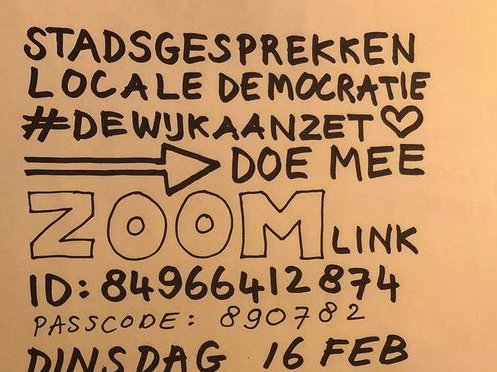 STADSGESPREKKEN
LOCALE DEMOCRATIE
#DEWIJKAANZET♡
DOE MEE
ZOOM LINK
ID: 84966412874
PASSCODE: 890782
DINSDAG 16 FEB